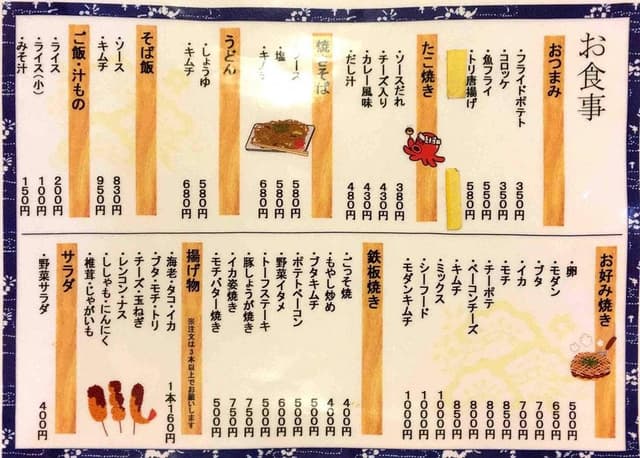 お食事
おつまみ
・フライドポテト 350円
・コロッケ 350円
・魚フライ 550円
・トリ唐揚げ 580円
たこ焼き
・ソースだれ 380円
・チーズ入り 430円
・カレー風味 430円
・だし汁 480円
焼きそば
・ソース 580円
・塩 580円
・キムチ 680円
うどん
・しょうゆ 580円
・キムチ 680円
そば飯
・ソース 830円
・キムチ 950円
ご飯・汁もの
・ライス 200円
・ライス(小) 100円
・みそ汁 150円
お好み焼き
・卵 550円
・モダン 650円
・ブタ 700円
・イカ 700円
・モチ 850円
・チーポテ 850円
・ベーコンチーズ 850円
・キムチ 850円
・ミックス 1000円
・シーフード 1000円
・モダンキムチ 1000円
鉄板焼き
・ごっそ焼 400円
・もやし炒め 400円
・ブタキムチ 500円
・ポテトベーコン 500円
・野菜イタメ 600円
・トーフステーキ 500円
・豚しょうが焼き 750円
・イカ姿焼き 750円
・モチバター焼き 500円
揚げ物 ※注文は3本以上でお願いします
・海老・タコ・イカ 1本160円
・ブタ・モチ・トリ
・チーズ・玉ねぎ
・レンコン・ナス
・ししゃも・にんにく
・椎茸・じゃがいも
サラダ
・野菜サラダ 400円